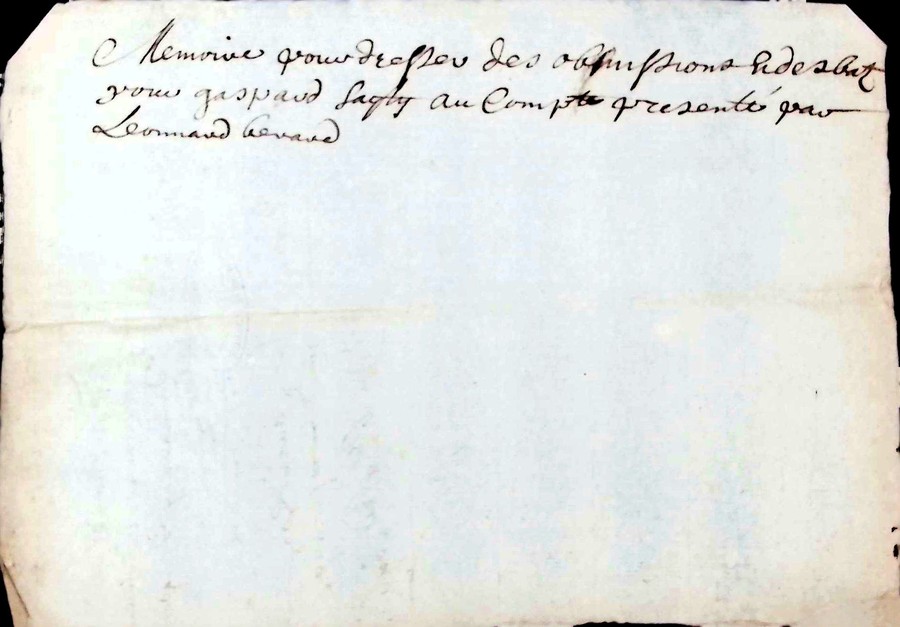 Memoire pour dresser des obmissions & desbatz
pour gaspard au Compte presenté par
Leonnard